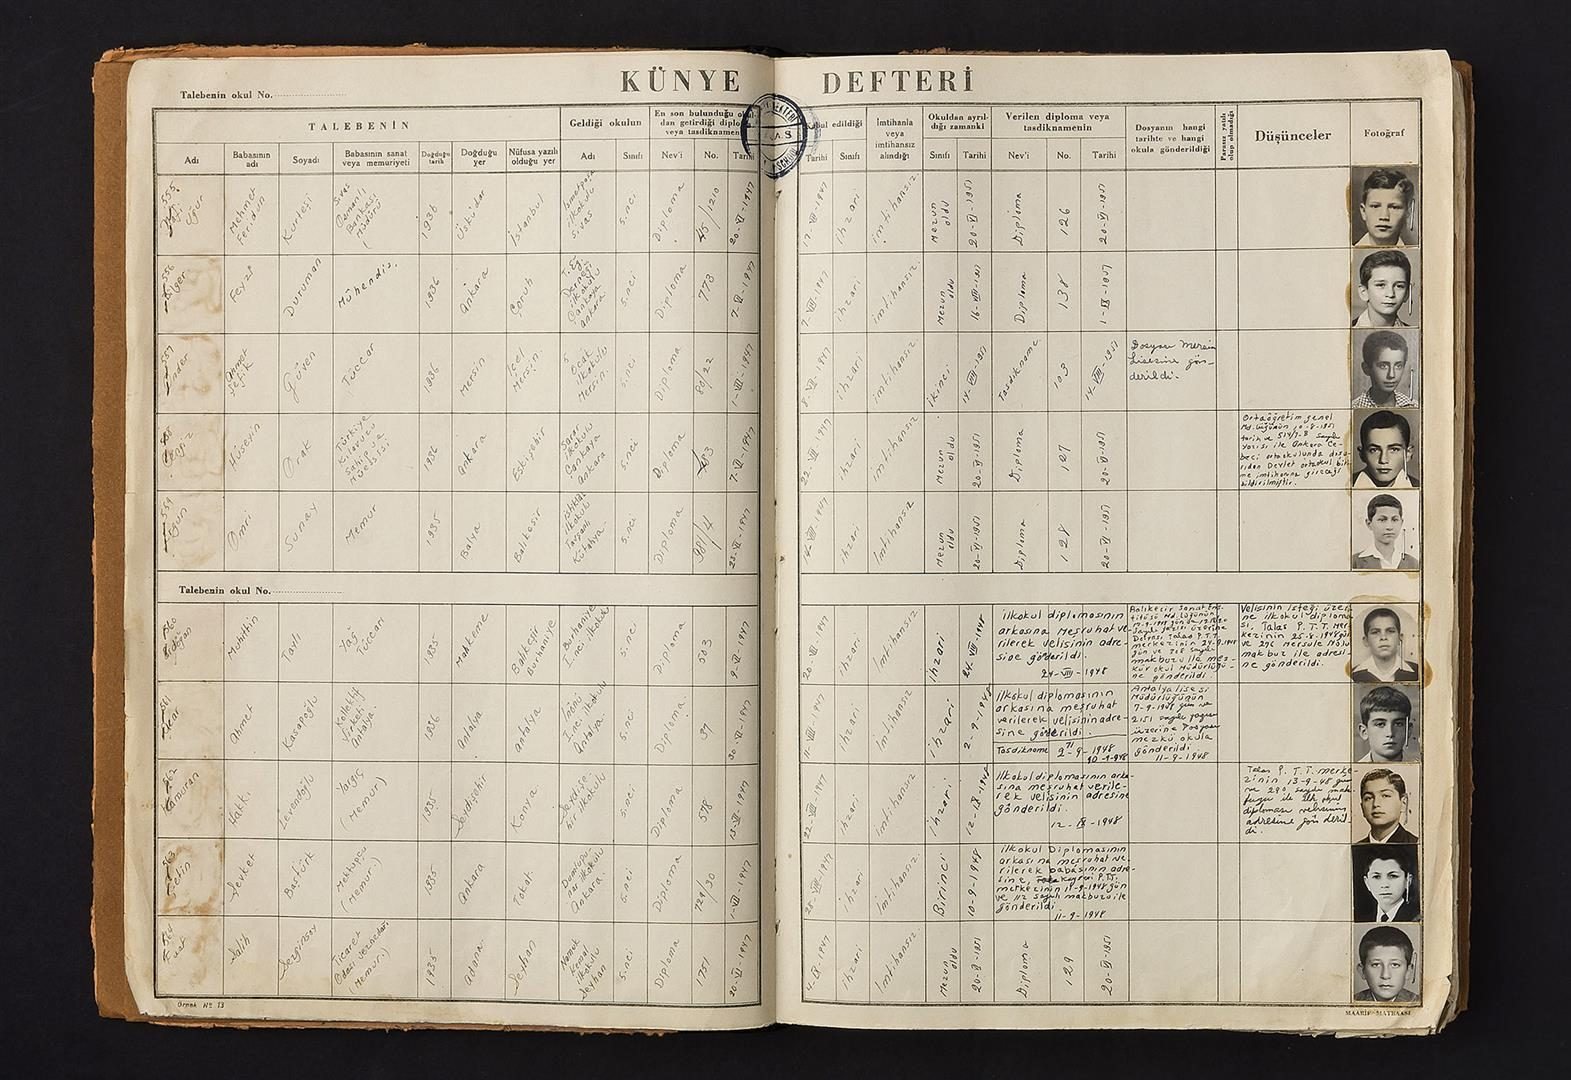 KÜNYE DEFTERİ
Talebenin okul No.
TALEBENİN
Geldiği okulun
En son bulunduğu okul-
dan getirdiği diploma
veya tasdiknamenin
Kabul edildiği
İmtihanla
veya
imtihansız
alındığı
Okuldan ayrıl-
dığı zamanki
Verilen diploma veya
tasdiknamenin
Dosyanın hangi
tarihte ve hangi
okula gönderildiği
Parasız yatılı
olup olmadığı
Düşünceler
Fotoğraf
Adı
Babasının
adı
Soyadı
Babasının sanat
veya memuriyeti
Doğduğu
tarih
Doğduğu
yer
Nüfusa yazılı
olduğu yer
Adı
Sınıfı
Nev'i
No.
Tarihi
Tarihi
Sınıfı
Sınıfı
Tarihi
Nev'i
No.
Tarihi
555
Uğur
Mehmet
Feridun
Kurtesi
Sivas
Osmanlı
Bankası
Müdürü
1936
Üsküdar
İstanbul
İsmetpaşa
ilkokulu
Sivas
5.nci
Diploma
45/1210
20-VI-1947
17-VII-1947
ihzari
imtihansız
Mezun
oldu
20-VI-1951
Diploma
126
20-VI-1951
556
Feyzi
Duruman
Mühendis.
1936
Ankara
Çoruh
ilkokulu
Çankaya
Ankara
5.nci
Diploma
773
7-VI-1947
7-VIII-1947
ihzari
imtihansız
Mezun
oldu
16-VIII-1951
Diploma
138
1-IX-1951
557
Önder
Ahmet
Güven
Tüccar
1936
Mersin
İçel
Mersin
5
Ocak
ilkokulu
Mersin.
5.nci
Diploma
80/22
1-VII-1947
8-VII-1947
ihzari
imtihansız
ikinci
14-VIII-1951
Tasdikname
103
14-VIII-1951
Dosyası Mersin
Lisesine gön-
derildi.
Cengiz
Hüseyin
Orak
Türkiye
1936
Ankara
Eskişehir
ilkokulu
Çankaya
Ankara
5.nci
Diploma
483
7-VI-1947
ihzari
imtihansız
Mezun
oldu
20-VI-1951
Diploma
127
20-VI-1951
Ortaöğretim genel
Md.lüğünün 10-8-1951
tarih ve 514/7-B sayılı
yazısı ile Ankara Ce-
beci ortaokulunda dışa-
rıdan Devlet ortaokul bitir-
me imtihanına gireceği
bildirilmiştir.
559
Ömri
Sunay
Memur
1935
Balya
Balıkesir
ilkokulu
Tavşanlı
Kütahya
5.nci
Diploma
98/4
23-VI-1947
ihzari
imtihansız
Mezun
oldu
20-VI-1951
Diploma
128
20-VI-1951
Talebenin okul No.
560
Erdoğan
Muhittin
Tavlı
Yağ
Tüccarı
1935
Balıkesir
Burhaniye
Burhaniye
1.nci ilkokulu
5.nci
Diploma
503
9-VI-1947
ihzari
imtihansız
ihzari
24-VIII-1948
ilkokul diplomasının
arkasına meşruhat ve-
rilerek velisinin adre-
sine gönderildi.
24-VIII-1948
Velisinin isteği üzeri-
ne ilkokul diploma-
sı, Talas P.T.T. Mer-
kezinin 25-8-1948 gün
makbuz ile adresi-
ne gönderildi.
561
Acar
Ahmet
Kasapoğlu
Kollektif
Şirket
Antalya.
1936
Antalya
Antalya
İnönü
1.nci ilkokulu
Antalya.
5.nci
Diploma.
37
30-VI-1947
11-VIII-1947
ihzari
imtihansız
ihzari
2-9-1948
ilkokul diplomasının
arkasına meşruhat
verilerek velisinin adre-
sine gönderildi.
Tasdikname
10-9-1948
Antalya lisesi
Müdürlüğünün
7-9-1948 gün ve
2151 sayılı yazısı
üzerine Dosyası
mezkû okula
gönderildi
11-9-1948
562
Kamuran
Hakkı
Levendoğlu
Yargıç
Memur)
1935
Seydişehir
Konya
ilkokulu
5.nci
Diploma
578
13-VI-1947
22-VII-1947
ihzari
imtihansız
ihzari
12-IX-1948
ilkokul diplomasının arka-
sına meşruhat verile-
rek velisinin adresine
gönderildi.
12-IX-1948
Talas P.T.T. merke-
zinin 13-9-48 gün
ve 290 sayılı mak-
buzu ile ilk okul
diploması velisinin
adresine gönderil-
di.
563
Çetin
Şevket
Baştürk
Mektupçu
Memur.)
1935
Ankara
Tokat.
Dumlupı-
nar ilkokulu
Ankara.
5.nci
Diploma
724/30
1-VII-1947
25-VIII-1947
ihzari
imtihansız.
Birinci
10-9-1948
ilkokul Diplomasının
arkasına meşruhat ve-
rilerek babasının adre-
sine, Kayseri P.T.T.
merkezinin 11-9-1948 gün
ve 112 sayılı makbuzu ile
gönderildi.
11-9-1948
564
Fuat
Salih
Sezginsoy
Ticaret
Odası veznedarı
Memur.)
1935
Adana
Seyhan
Namık
Kemal
ilkokulu
Seyhan
5.nci
Diploma
1751
20-VI-1947
4-IX-1947
ihzari
imtihansız.
Mezun
oldu
20-VI-1951
Diploma
129
20-VI-1951
Örnek No 13
MAARİF MATBAASI